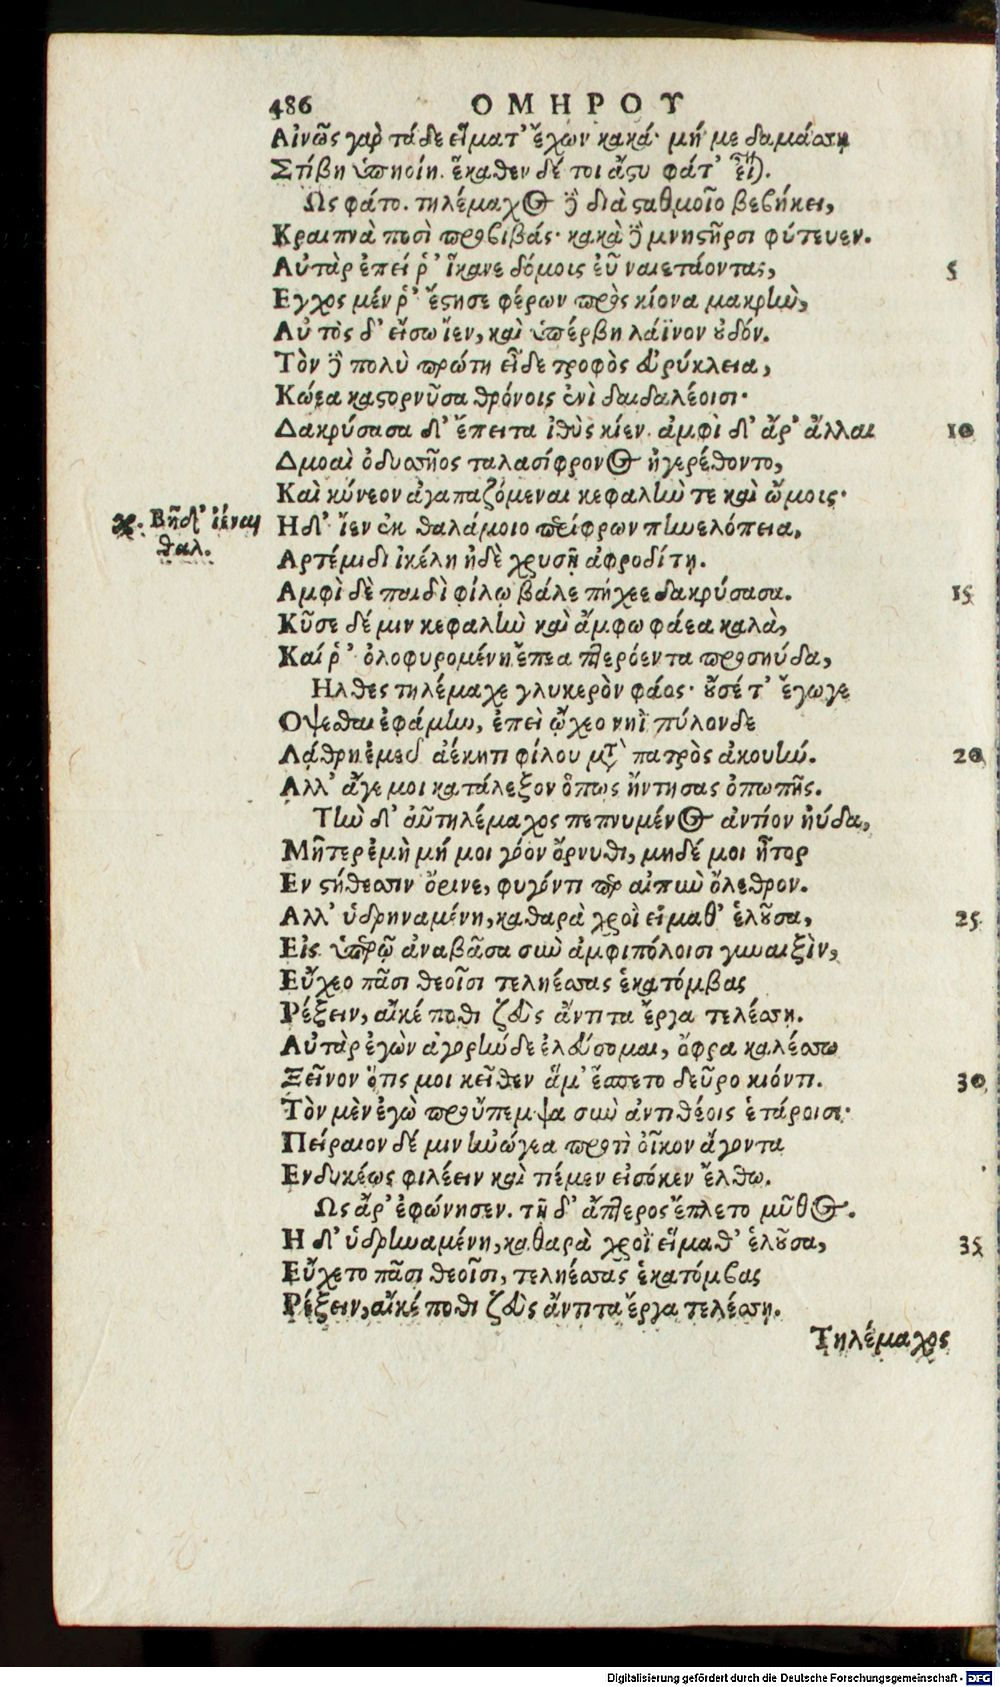 486 ΟΜΗΡΟΥ
Αἰνῶς γὰρ τάδε εἵματ' ἔχων κακά· μή με δαμάσῃ
Στίβη ὑπηοίη. ἕκαθεν δέ τοι ἄστυ φάτ' εἶναι.
Ὣς φάτο. τηλέμαχος δὲ διὰ σταθμοῖο βεβήκει,
Κραιπνὰ ποσὶ προβιβάς· κακὰ δὲ μνηστῆρσι φύτευεν.
Αὐτὰρ ἐπεί ῥ' ἵκανε δόμοις εὖ ναιετάοντας, 5
Εγχος μέν ῥ' ἔστησε φέρων πρὸς κίονα μακρὴν,
Αὐτὸς δ' εἴσω ἴεν, καὶ ὑπέρβη λάϊνον οὐδόν.
Τὸν δὲ πολὺ πρώτη εἶδε τροφὸς εὐρύκλεια,
Κώεα καστορνῦσα θρόνοις ἐνὶ δαιδαλέοισι·
Δακρύσασα δ' ἔπειτα ἰθὺς κίεν. ἀμφὶ δ' ἄρ' ἄλλαι 10
Δμοαὶ ὀδυσσῆος ταλασίφρονος ἠγερέθοντο,
Καὶ κύνεον ἀγαπαζόμεναι κεφαλήν τε καὶ ὤμοις·
γρ. Βῆ δ' ἰέναι
θαλ.
Η δ' ἴεν ἐκ θαλάμοιο περίφρων πηνελόπεια,
Αρτέμιδι ἰκέλη ἠδὲ χρυσῇ ἀφροδίτῃ.
Αμφὶ δὲ παιδὶ φίλῳ βάλε πήχεε δακρύσασα. 15
Κῦσε δέ μιν κεφαλήν καὶ ἄμφω φάεα καλὰ,
Καί ῥ' ὀλοφυρομένη ἔπεα πτερόεντα προσηύδα,
Ηλθες τηλέμαχε γλυκερὸν φάος· οὔ σέ τ' ἔγωγε
Οψεσθαι ἐφάμην, ἐπεὶ ᾤχεο νηῒ πύλονδε
Λάθρη ἐμεῦ ἀέκητι φίλου μετὰ πατρὸς ἀκουήν. 20
Αλλ' ἄγε μοι κατάλεξον ὅπως ἤντησας ὀπωπῆς.
Τὴν δ' αὖ τηλέμαχος πεπνυμένος ἀντίον ηὔδα,
Μῆτερ ἐμὴ μή μοι γόον ὄρνυθι, μηδέ μοι ἦτορ
Εν στήθεσσιν ὄρινε, φυγόντι περ αἰπὺν ὄλεθρον.
Αλλ' ὑδρηναμένη, καθαρὰ χροῒ εἵμαθ' ἑλοῦσα, 25
Εἰς ὑπερῷ' ἀναβᾶσα σὺν ἀμφιπόλοισι γυναιξὶν,
Εὔχεο πᾶσι θεοῖσι τεληέσσας ἑκατόμβας
Ρέξειν, αἴκέ ποθι ζεὺς ἄντιτα ἔργα τελέσσῃ.
Αὐτὰρ ἐγὼν ἀγορήνδε ἐλεύσομαι, ὄφρα καλέσσω
Ξεῖνον ὅτις μοι κεῖθεν ἅμ' ἕσπετο δεῦρο κιόντι. 30
Τὸν μὲν ἐγὼ προὔπεμψα σὺν ἀντιθέοις ἑτάροισι·
Πείραιον δέ μιν ἠνώγεα προτὶ οἶκον ἄγοντα
Ενδυκέως φιλέειν καὶ τιέμεν εἰσόκεν ἔλθω.
Ως ἄρ' ἐφώνησεν. τῇ δ' ἄπτερος ἔπλετο μῦθος.
Η δ' ὑδρηναμένη, καθαρὰ χροῒ εἵμαθ' ἑλοῦσα, 35
Εὔχετο πᾶσι θεοῖσι, τεληέσσας ἑκατόμβας
Ρέξειν, αἴκέ ποθι ζεὺς ἄντιτα ἔργα τελέσσῃ.
Τηλέμαχος
Digitalisierung gefördert durch die Deutsche Forschungsgemeinschaft - DFG